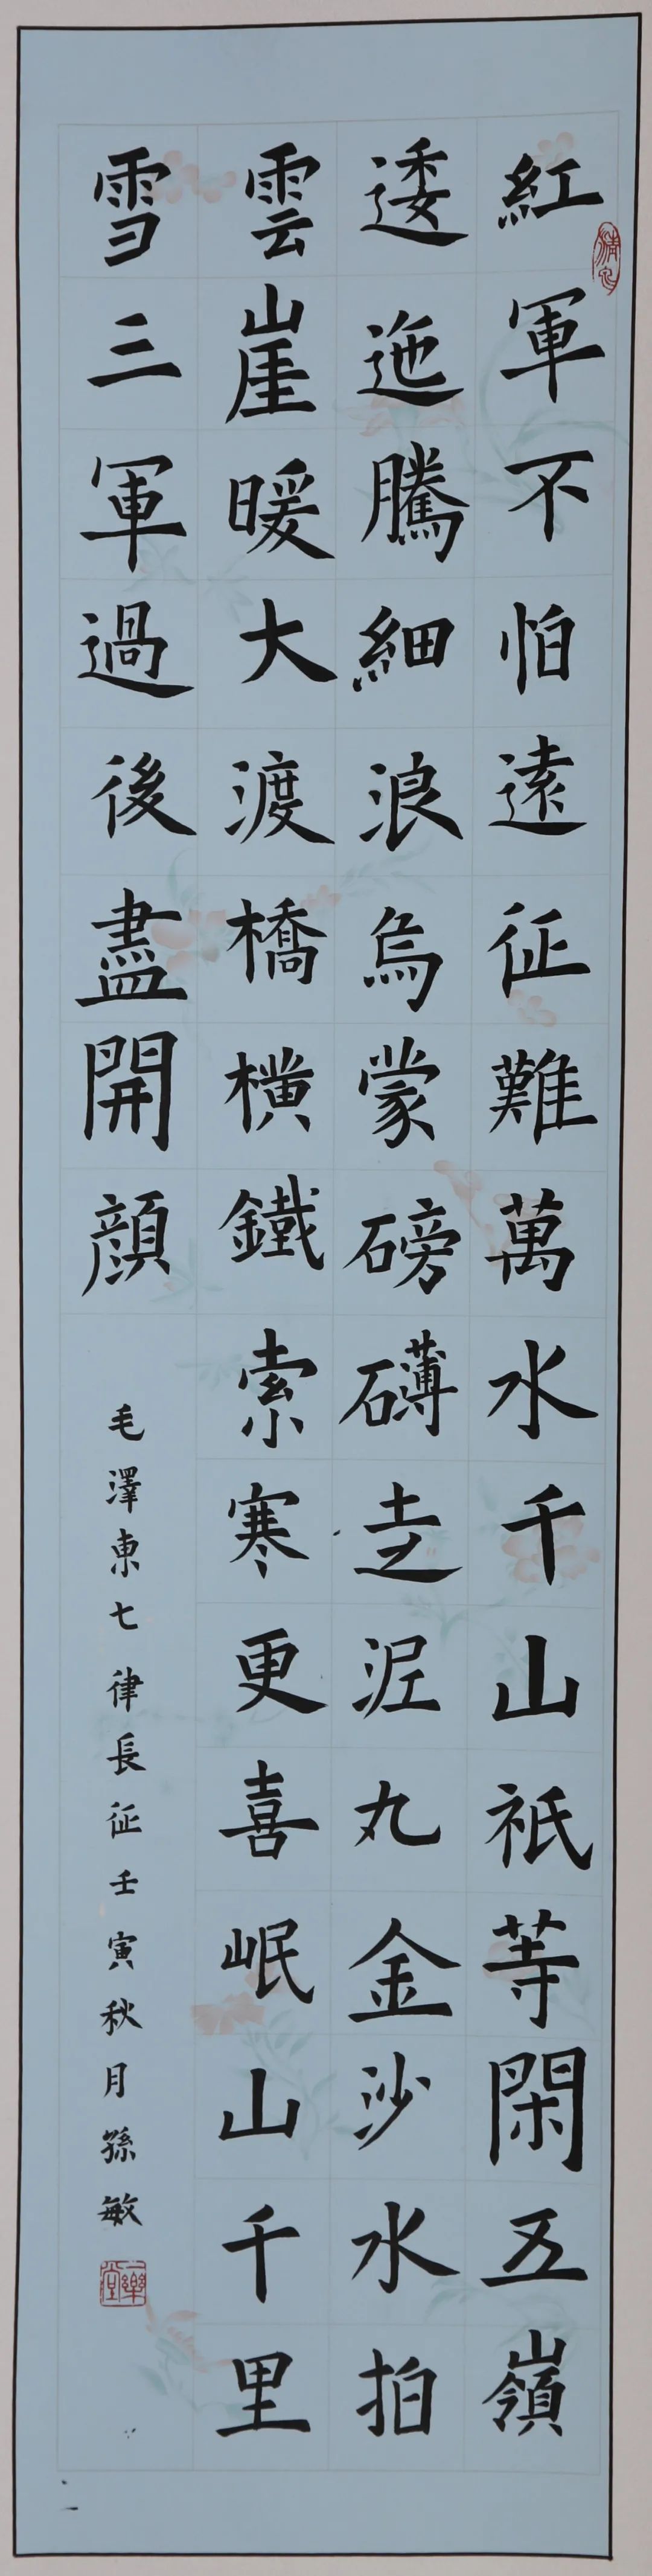 紅軍不怕遠征難萬水千山祇等閑五嶺
逶迤騰細浪烏蒙磅礴走泥丸金沙水拍
雲崖暖大渡橋橫鐵索寒更喜岷山千里
雪三軍過後盡開顏
毛澤東七律長征壬寅秋月孫敏